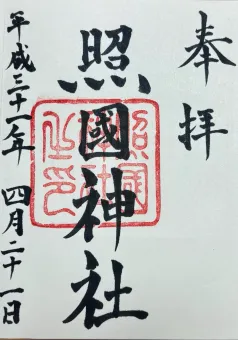 奉拝
照國神社
平成三十一年 四月二十一日